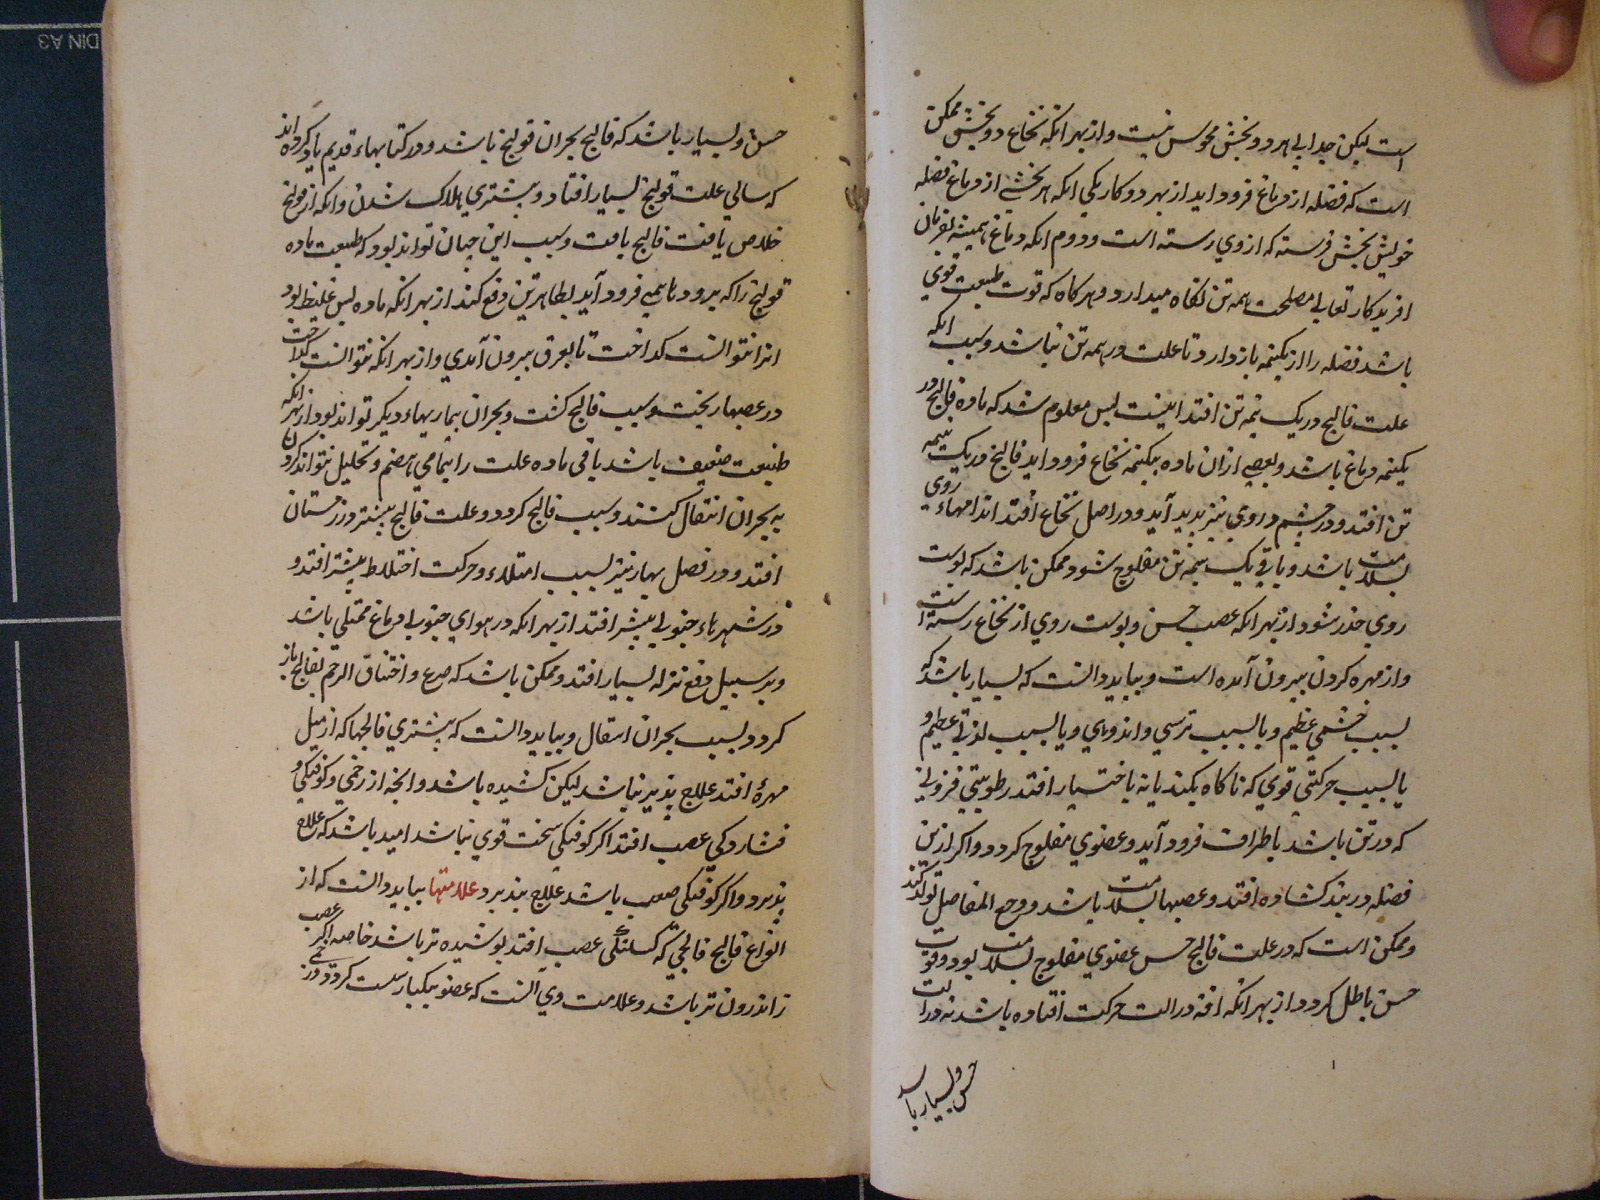 است لیکن جدایی هر دو بخش محسوس نیست و از بهر انکه نخاع دو بخش ممکن
است که فضله از دماغ فرود اید از بهر دو کار یکی انکه هر بخشی از دماغ فضله
خویش بخش فرسته که از وی رسته است و دوم انکه دماغ همیشه بفرمان
افریدکار تعالی مصلحت همه تن نکاه میدارد و هرکاه که قوت طبیعت قوی
باشد فضله را از یکنیمه بازدارد تا علت در همه تن نباشد و سبب انکه
علت فالج در یک نیمه تن افتد اینست پس معلوم شد که ماده فالج در
یکنیمه دماغ باشد و بعضی ازان ماده بیکنیمه نخاع فرود اید فالج در یک نیمه
تن افتد و در چشم و روی نیز پدید آید و در اصل نخاع افتد اندامهاء روی
بسلامت باشد و باقی یک نیمه تن مفلوج شود و ممکن باشد که پوست
روی خدر شود از بهر انکه عصب حس و پوست روی از نخاع رسته است
و از مهره کردن بیرون آمده است و بباید دانست که بسیار باشد که
بسبب خشمی عظیم و یا بسبب ترسی و اندوهی و یا بسبب لذتی عظیم و
یا بسبب حرکتی قوی که ناکاه بکند یا نه باختیار افتد رطوبتی فزونی
که در تن باشد باطراف فرود آید و عضوی مفلوج کردد و اکر ازین
فضله در بند کشاده افتد و عصبها بسلامت باشد و وجع المفاصل تولد کند
و ممکن است که در علت فالج حس عضوی مفلوج بسلامت بود و قوت
حس باطل کردد از بهر انکه افه در الت حرکت افتاده باشد نه در الت
حس و بسیار باشد
حس و بسیار باشد که فالج بحران قولنج باشد و در کتابهاء قدیم یاد کرده اند
که سالی علت قولنج بسیار افتاد و بیشتری هلاک شدن و انکه از قولنج
خلاص یافت فالج یافت و سبب این چنان تواند بود که طبیعت ماده
قولنج را که برودهاء همی فرود آید بظاهر تن دفع کند از بهر انکه ماده بس غلیظ بود
انرا نتوانست کداخت تا بعرق بیرون آمدی و از بهر انکه نتوانست کداخت
در عصبها ریخت و سبب فالج کشت و بحران بیماریهاء دیکر تواند بود از بهر انکه
طبیعت ضعیف باشد باقی ماده علت را بتمامی هضم و تحلیل نتواند کردن
به بحران انتقال کنند و سبب فالج کردد و علت فالج بیشتر در زمستان
افتد و در فصل بهار نیز بسبب امتلاء و حرکت اختلاط بیشتر افتد و
در شهرهاء جنوبی بیشتر افتد از بهر انکه در هوای جنوبی دماغ ممتلی باشد
و بر سبیل دفع نزله بسیار افتد و ممکن باشد که صرع و اختناق الرحم بفالج باز
کردد بسبب بحران انتقال و بباید دانست که بیشتری فالجها که از میل
مهرهٔ افتد علاج پذیر نباشد لیکن کشیده باشد و انچه از زخمی و کوفتکی و
فشاردکی عصب افتد اکر کوفتکی سخت قوی نباشد امید باشد که علاج
پذیرد و اکر کوفتکی صعب باشد علاج نپذیرد علامتها بباید دانست که از
انواع فالج فالجی که کسلنکی عصب افتد پوشیده تر باشد خاصه اکر عصب
زاندرون تر باشد و علامت وی آنست که عضو بیکبار سست کردد و در